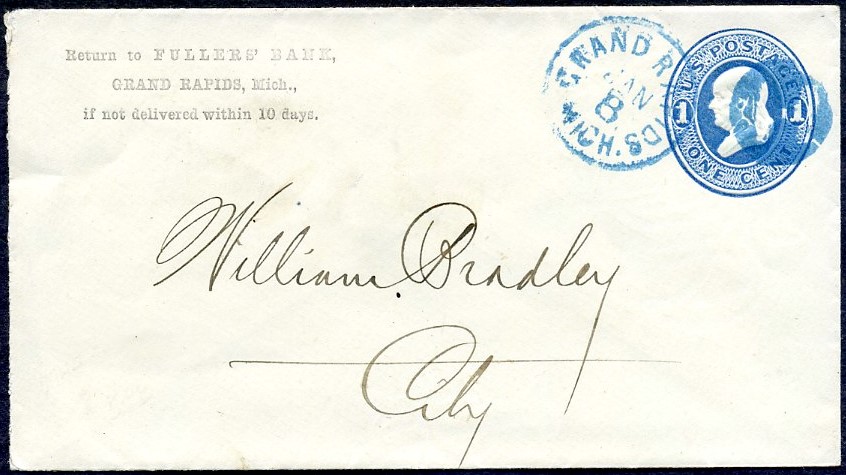 Return to FULLERS' BANK,
GRAND RAPIDS, Mich.,
if not delivered within 10 days.
GRAND RAPIDS
JAN
8
MICH.
U.S. POSTAGE
1 1
ONE CENT
William Bradley
City